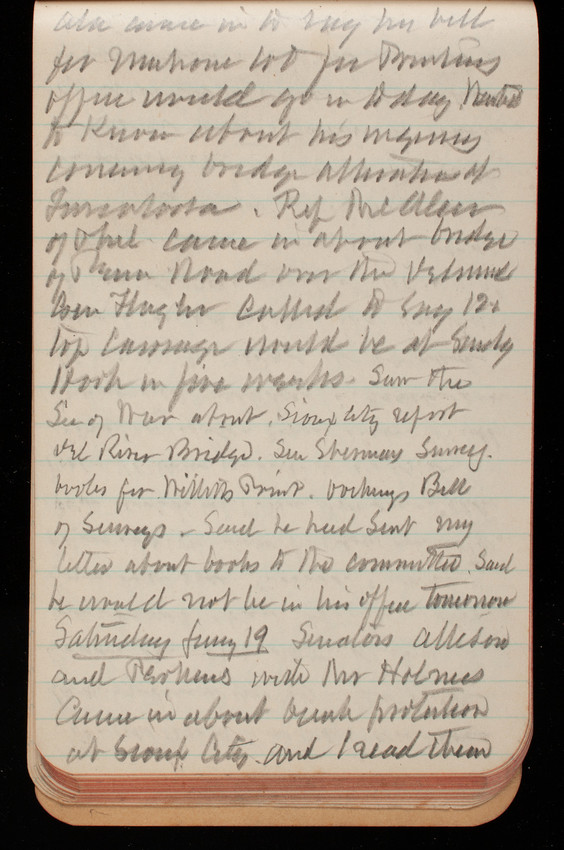 also came in to say his bill
for
office would go in today. Wanted
to know about his inquiry
bridge at
Tuscaloosa. Rep
of Del. came in about bridge
of Penn Road over the Delaware
Gen Flagler called to say 12in
top Carriage would be at Sandy
Hook in five weeks. Saw the
Sec of War about Sioux City report
Del River Bridge. Sen Sherman Survey
books for Print. Bill
of Surveys. Said he had sent my
letter about books to the committee. Said
he would not be in his office tomorrow
Saturday Jany 19 Senators Allison
and with Mr Holmes
Came in about bank protection
at Sioux City. and I read them